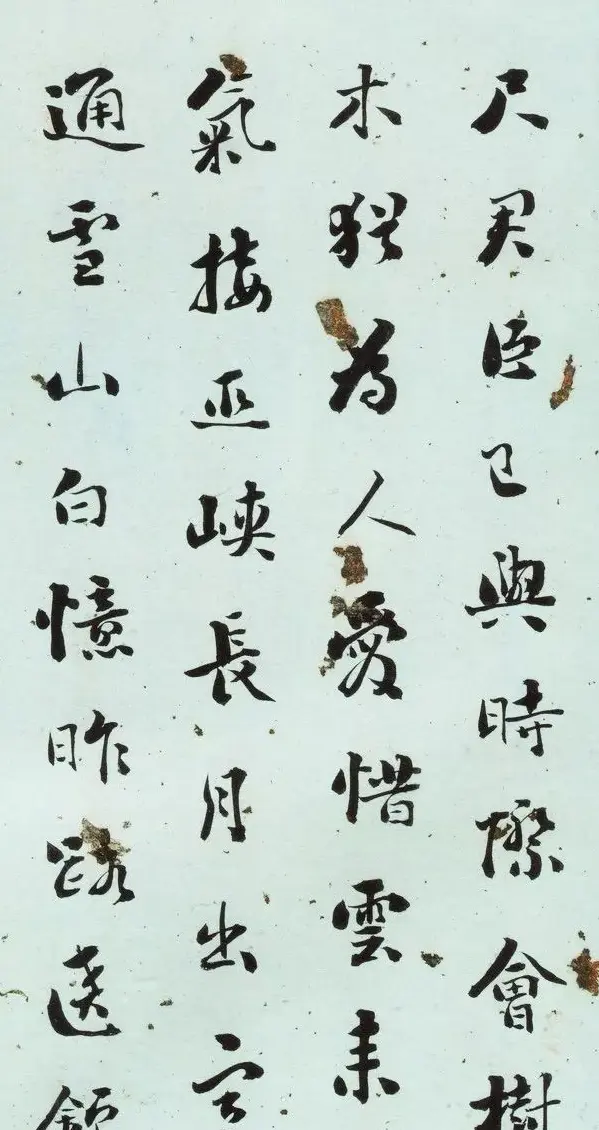 尺君臣已與時際會樹
木猶為人愛惜雲來
氣接巫峽長月出寒
通雪山白憶昨路遶錦